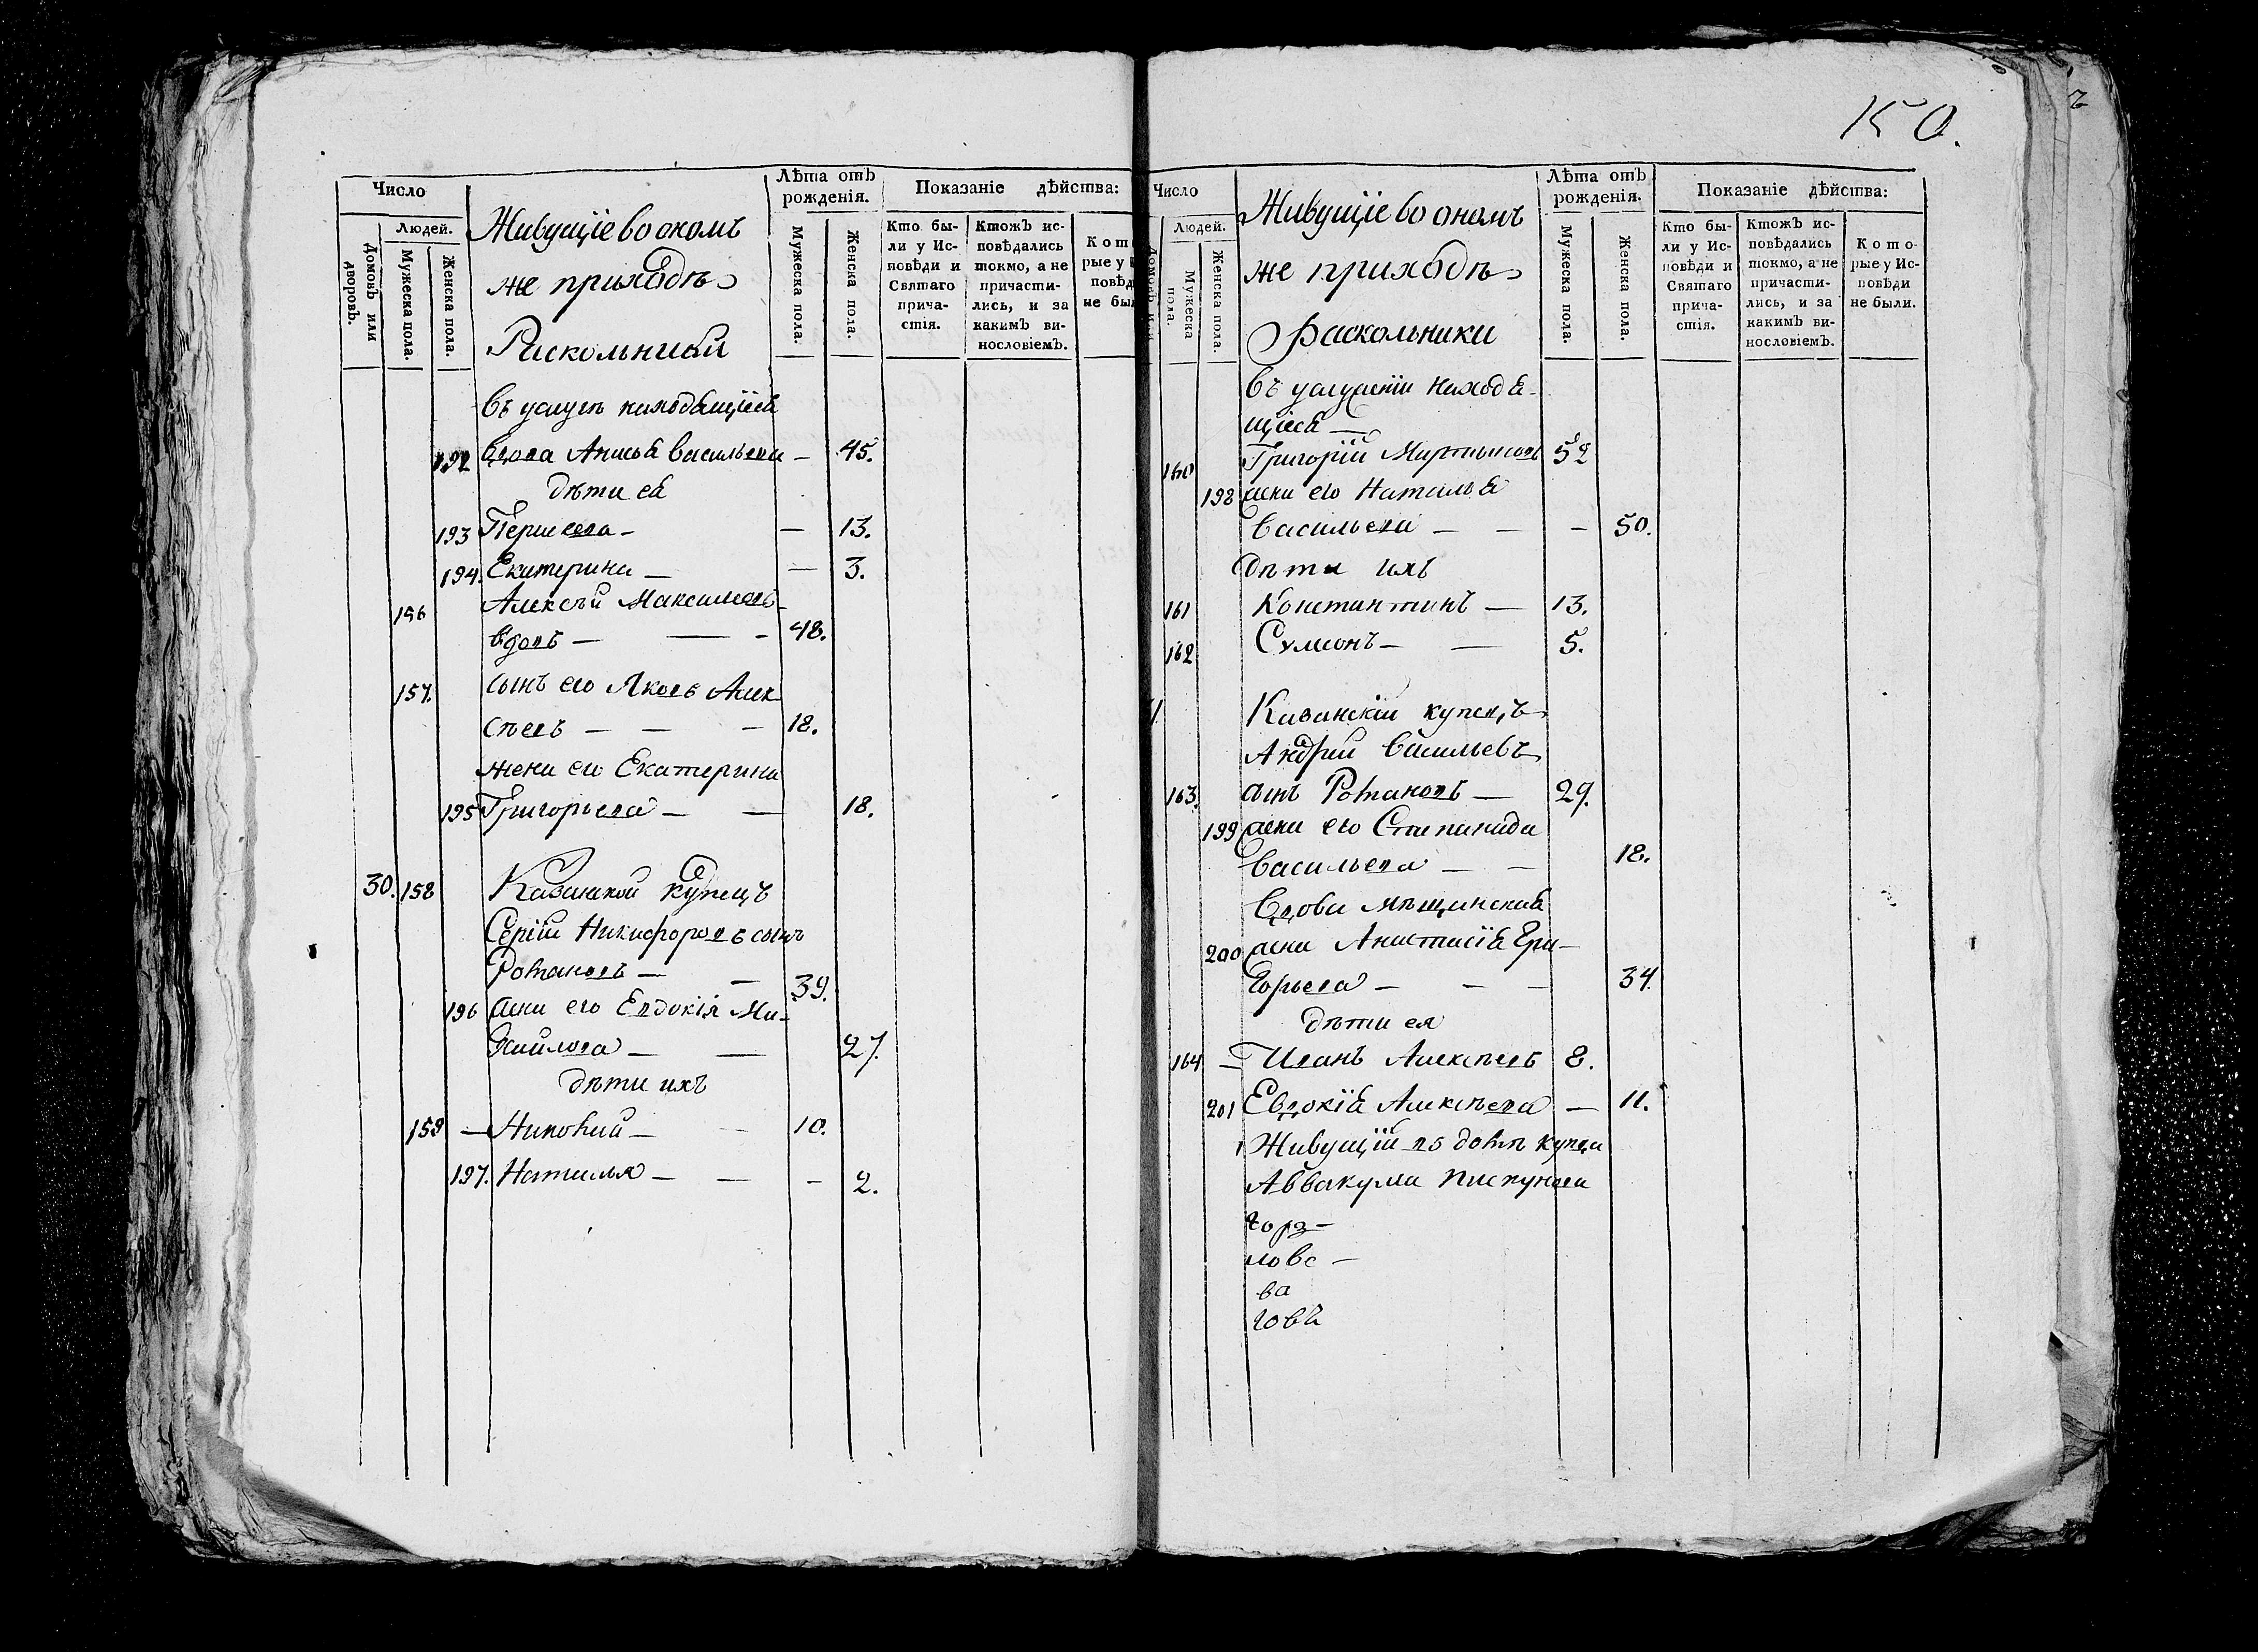 150.
Число
Людей.
Домовъ или дворовъ.
Мужеска пола.
Женска пола.
Живущіе во ономъ
же приходѣ
Раскольники
Лѣта отъ
рожденія.
Мужеска пола.
Женска пола.
Показаніе дѣйства:
Кто бы-
ли у Ис-
повѣди и
Святаго
прича-
стія.
Ктожъ ис-
повѣдались
токмо, а не
причасти-
лись, и за
какимъ ви-
нословіемъ.
Кот
рые у
повѣд
не был
въ услугѣ находящіеся
192 вдова Анисья Васильева — 45.
дѣти ея
193 — 13.
194. Екатерина — — 3.
156 Алексѣй Максимовъ
вдовъ — — - 48.
157. сынъ его Яковъ Алек-
сѣевъ — — — 18.
жена его Екатерина
195 Григорьева — — 18.
30. 158 Казанской купецъ
Сергій Никифоровъ сынъ
Романовъ — — 39.
196 жена его Евдокія Ми-
хайлова — — 27.
дѣти ихъ
159 — — — 10.
197. Наталья — — - 2.
Число
Людей.
Домовъ или
Мужеска пола.
Женска пола.
Живущіе во ономъ
же приходѣ
Раскольники
Лѣта отъ
рожденія.
Мужеска пола.
Женска пола.
Показаніе дѣйства:
Кто бы-
ли у Ис-
повѣди и
Святаго
прича-
стія.
Ктожъ ис-
повѣдались
токмо, а не
причасти-
лись, и за
какимъ ви-
нословіемъ.
Кото
рые у Ис-
повѣди
не были.
въ услуженіи находя-
щіеся —
160 Григорій Мартыновъ 52
198 жена его Наталья
Васильева — — - 50.
дѣти ихъ
161 Константинъ — 13.
162 Сѵмеонъ — — 5.
Казанскій купецъ
Андрей Васильевъ
163. сынъ Романовъ — 29.
199 жена его Степанида
Васильева — — 18.
вдова мѣщанская
200 жена Анастасія Гри-
горьева — — — 34.
дѣти ея
164 — Иванъ Алексѣевъ 8.
201 Евдокія Алексѣева — 11.
Живущій въ домѣ купца
Аввакума Пискунова